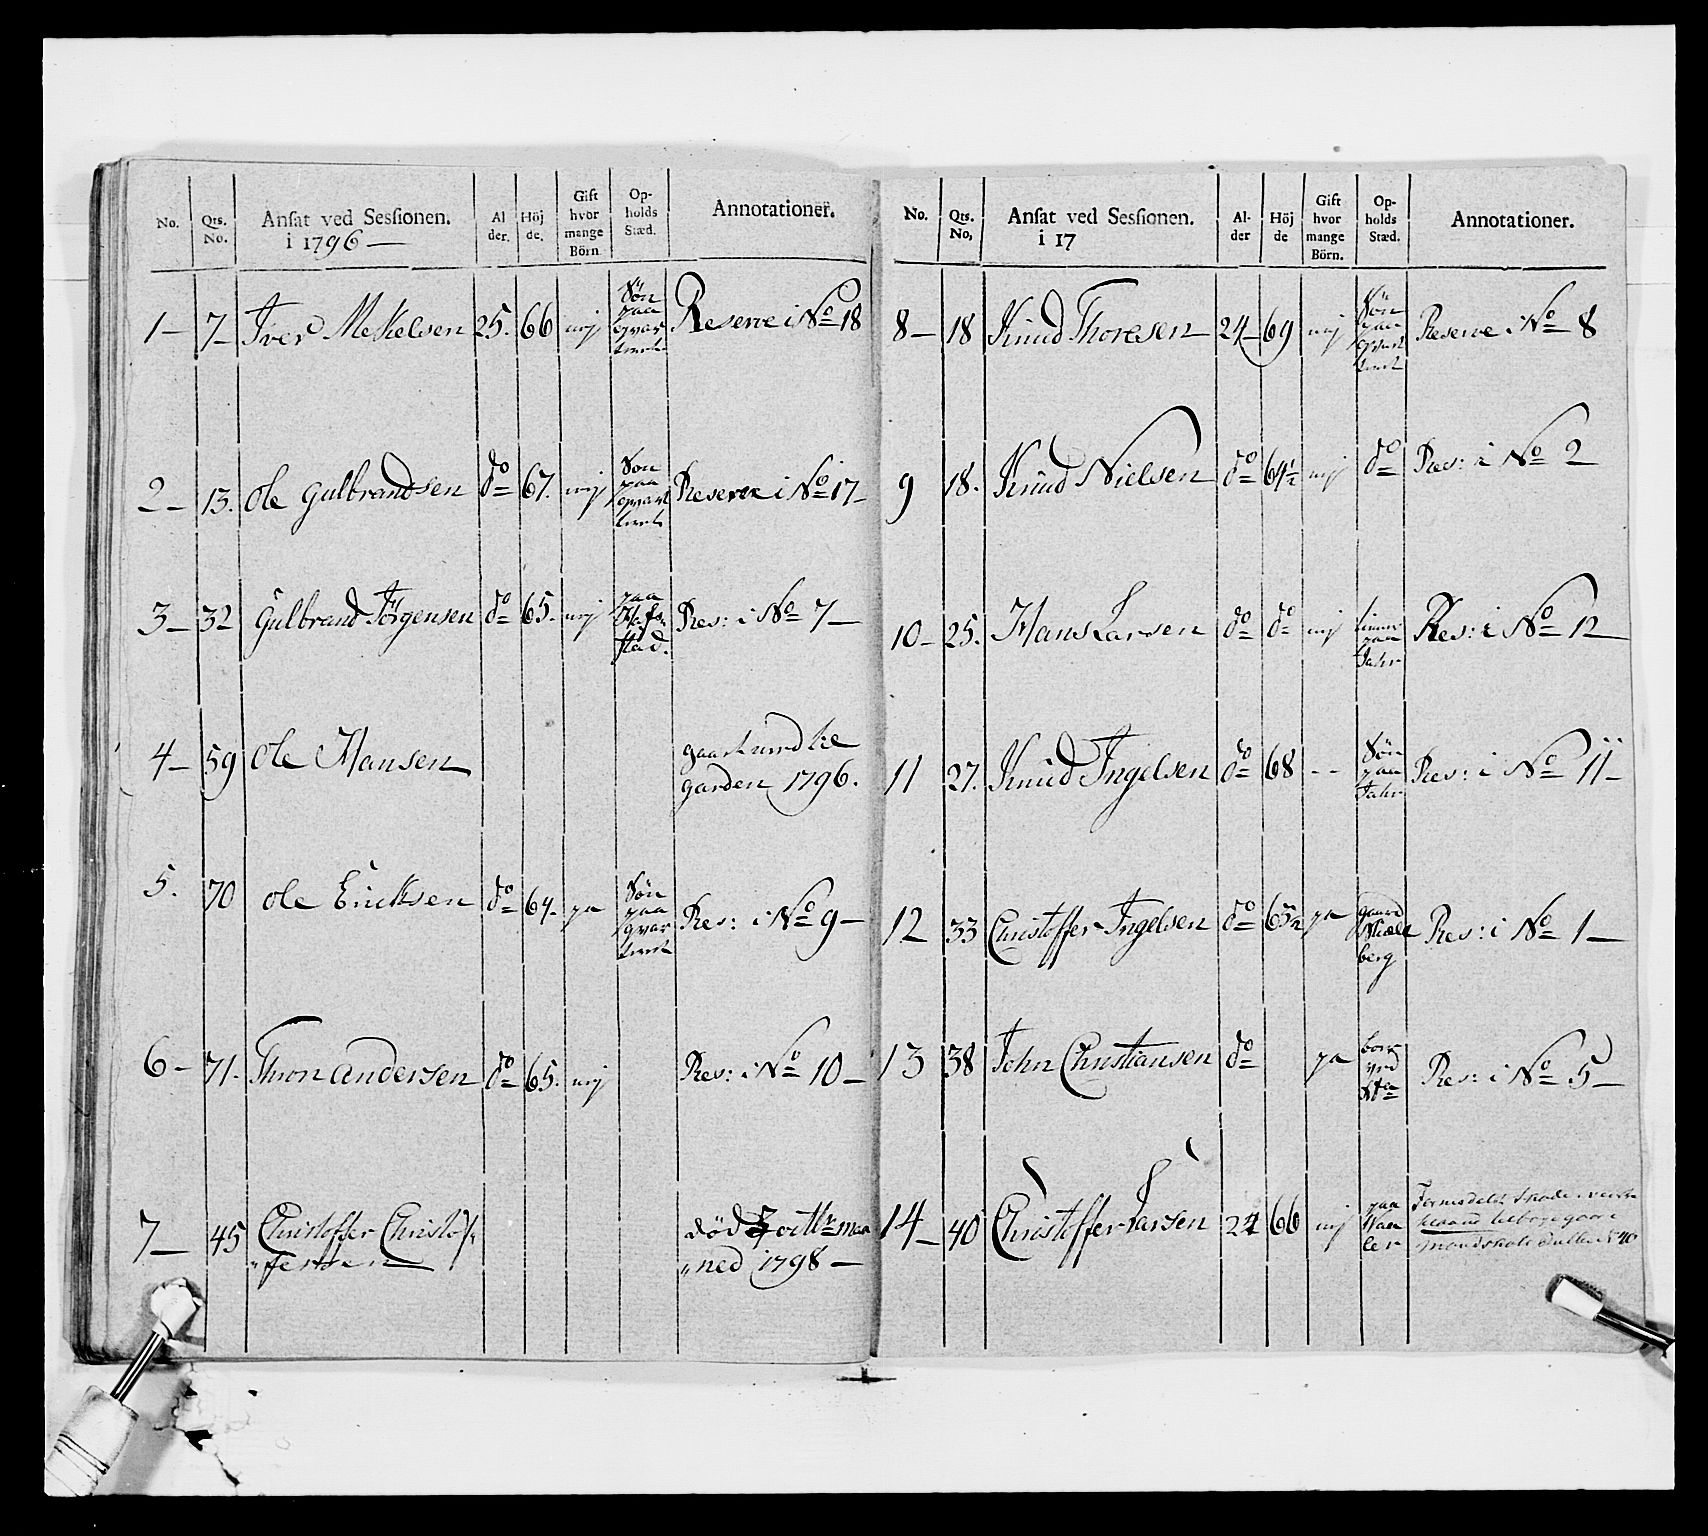 No. Qts. No. Ansat ved Sessionen. i 1796 — Al der. Höj de. Gift hvor mange Börn Op- holds Stæd. Annotationer.
1 — 7 — Iver Mekelsen 25. 66 nej Sön paa qvar teret Reserve i No 18
2 — 13. Ole Gulbrandsen do 67. nej Sön paa qvart teret Reserve i No 17 —
3 — 32 Gulbrand Jörgensen do 65. nej paa stad. Res: i No 7 —
4 — 59 Ole Hansen
garden 1796.
5. 70 Ole Ericksen do 64. ja Sön paa qvar teret Res: i No 9 —
6 — 71. Thron Andersen do 65. nej Res: i No 10 —
7 — 45 Christoffer Christof
„fersen död i octbr maa
„ned 1798 —
No. Qts. No, Ansat ved Sessionen. i 17 Al- der Höj de Gift hvor mange Börn. Op- holds Stæd. Annotationer.
8 — 18 Knud Thoresen 24 — 69 nej Sön paa qvart teret Reserve i No 8
9 18. Knud Nielsen do 64½ nej do Res: i No 2
10 — 25. Hans Larsen do do nej paa Res: i No 12
11 27. Knud Ingelsen do 68 - - Sön paa Res: i No 11 —
12 33 Christoffer Ingelsen do 65½ ja berg Res: i No 1 —
13 38 John Christiansen do ja ved Res: i No 5 —
14 — 40 Christoffer Larsen 24 66 nej paa